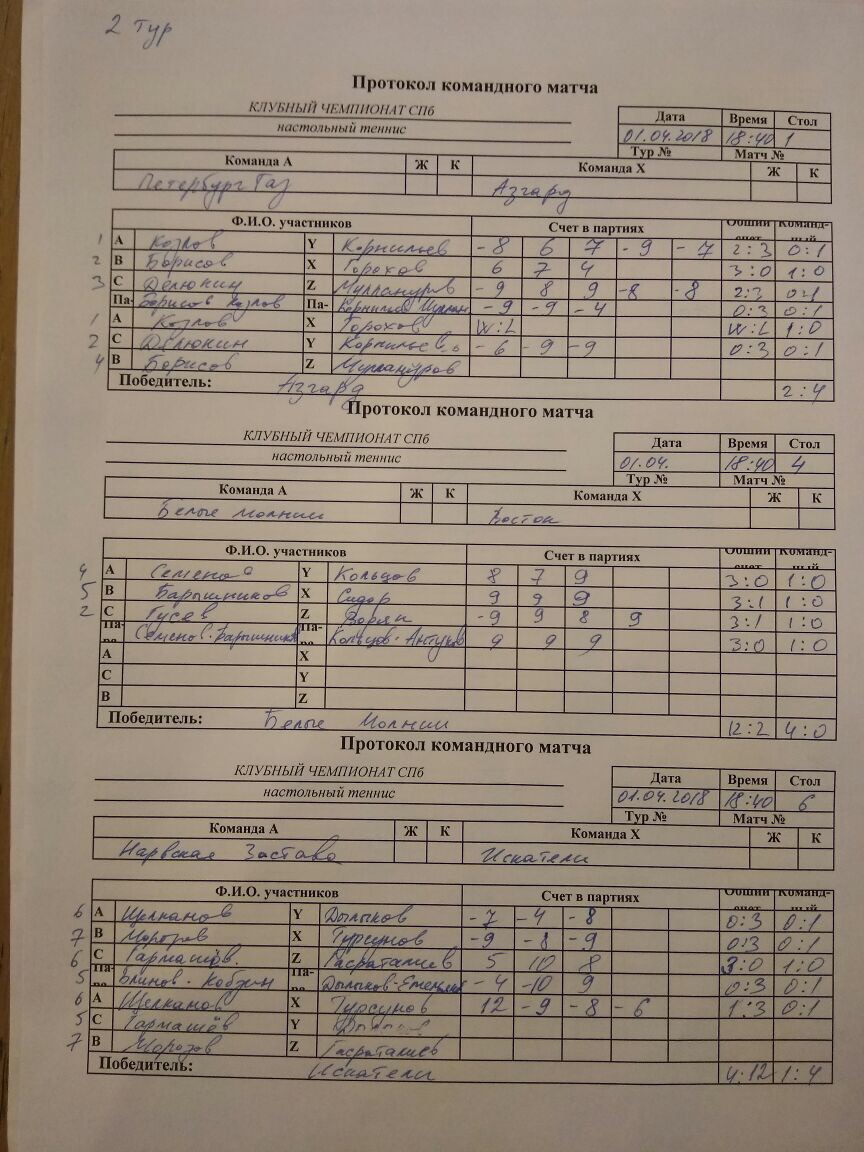 2 тур
Протокол командного матча
КЛУБНЫЙ ЧЕМПИОНАТ СПб
настольный теннис
Дата Время Стол
01.04.2018 18:40 1
Тур № Матч №
Команда А Ж К Команда Х Ж К
Петербург Газ Азгард
Ф.И.О. участников Счет в партиях Общий счет Команд-ный
1 A Козлов Y Корнильев -8 6 7 -9 -7 2:3 0:1
2 B Борисов X Горохов 6 7 4 3:0 1:0
3 C Делюкин Z Муллануров -9 8 9 -8 -8 2:3 0:1
Па- Борисов Козлов Па- -9 -9 -4 0:3 0:1
1 A Козлов X Горохов W:L W:L 1:0
2 C Делюкин Y Корнильев -6 -9 -9 0:3 0:1
4 B Борисов Z Муллануров
Победитель: Азгард 2:4
Протокол командного матча
КЛУБНЫЙ ЧЕМПИОНАТ СПб
настольный теннис
Дата Время Стол
01.04. 18:40 4
Тур № Матч №
Команда А Ж К Команда Х Ж К
Белые молнии Восток
Ф.И.О. участников Счет в партиях Общий счет Команд-ный
4 A Семенов Y Кольцов 8 7 9 3:0 1:0
5 B Барышников X Сидор 9 9 9 3:1 1:0
2 C Гусев Z -9 9 8 9 3:1 1:0
Па-ра Семенов-Барышников Па-ра Кольцов-Антуков 9 9 9 3:0 1:0
A X
C Y
B Z
Победитель: Белые Молнии 12:2 4:0
Протокол командного матча
КЛУБНЫЙ ЧЕМПИОНАТ СПб
настольный теннис
Дата Время Стол
01.04.2018 18:40 6
Тур № Матч №
Команда А Ж К Команда Х Ж К
Нарвская Застава Искатели
Ф.И.О. участников Счет в партиях Общий счет Команд-ный
6 A Щелканов Y Дылыков -7 -4 -8 0:3 0:1
7 B Морозов X Турсунов -9 -8 -9 0:3 0:1
6 C Гармашёв. Z Гасраталиев 5 10 8 3:0 1:0
5 Па-ра Блинов-Кобзин Па-ра -4 -10 9 0:3 0:1
6 A Щелканов X Турсунов 12 -9 -8 -6 1:3 0:1
5 C Гармашёв Y Дылыков
7 B Морозов Z Гасраталиев
Победитель: Искатели 4:12 1:4